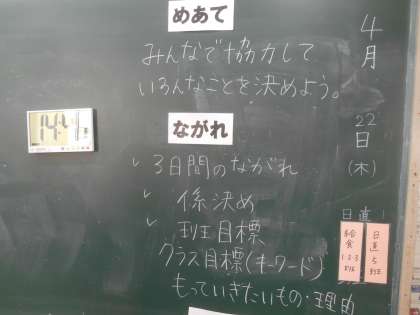 めあて
みんなで協力して
いろんなことを決めよう。
ながれ
✓3日間のながれ
✓係決め
✓班目標
クラス目標(キーワード)
もっていきたいもの・理由
4月
22日
(木)
日直
給食
1・2・3
日直
5